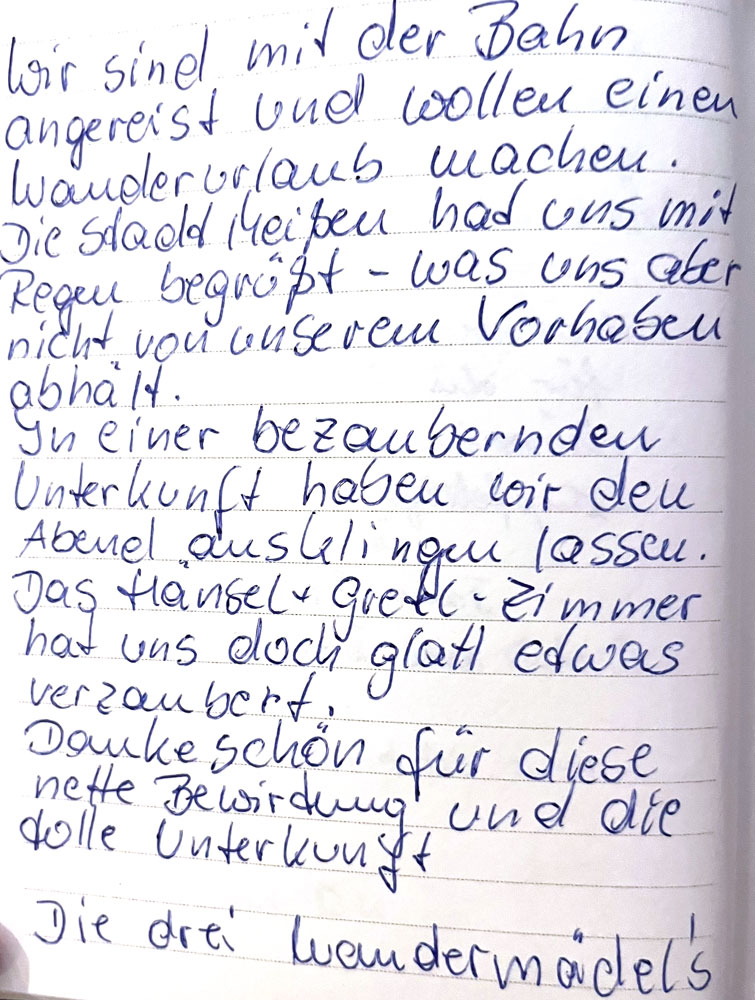 Wir sind mit der Bahn
angereist und wollen einen
Wanderurlaub machen.
Die Stadt Meißen hat uns mit
Regen begrüßt – was uns aber
nicht von unserem Vorhaben
abhält.
In einer bezaubernden
Unterkunft haben wir den
Abend ausklingen lassen.
Das Hänsel + Gretel - Zimmer
hat uns doch glatt etwas
verzaubert.
Dankeschön für diese
nette Bewirtung und die
tolle Unterkunft
Die drei Wandermädel's